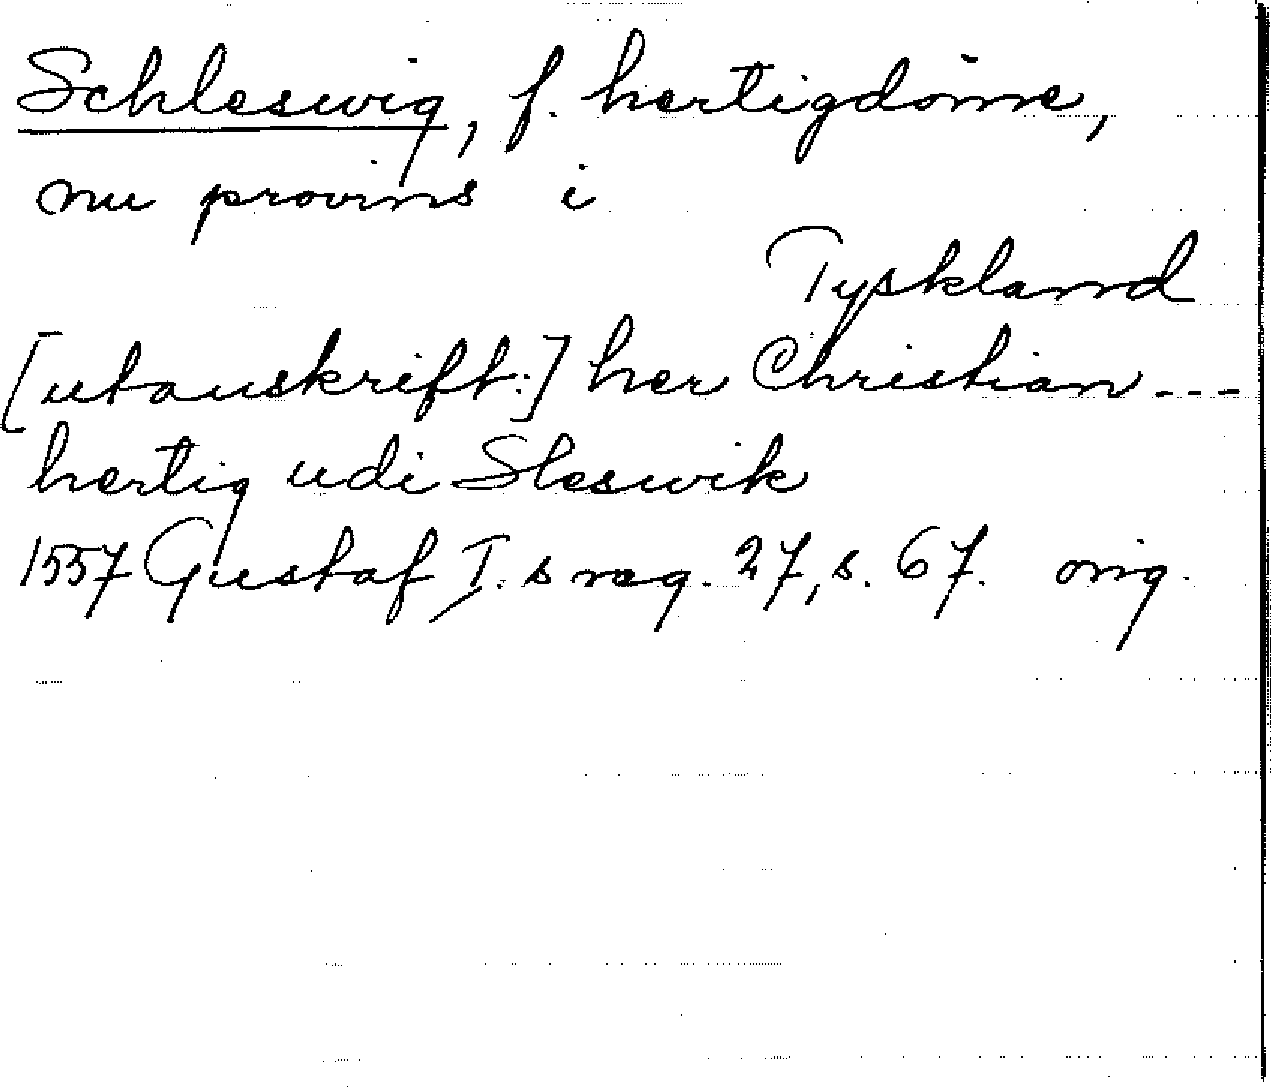 Schleswig, f. hertigdöme,
nu provins i
Tyskland
[utanskrift:] her Christian ---
hertig udi Sleswik
1557 Gustaf I.s reg. 27, s. 67. orig.